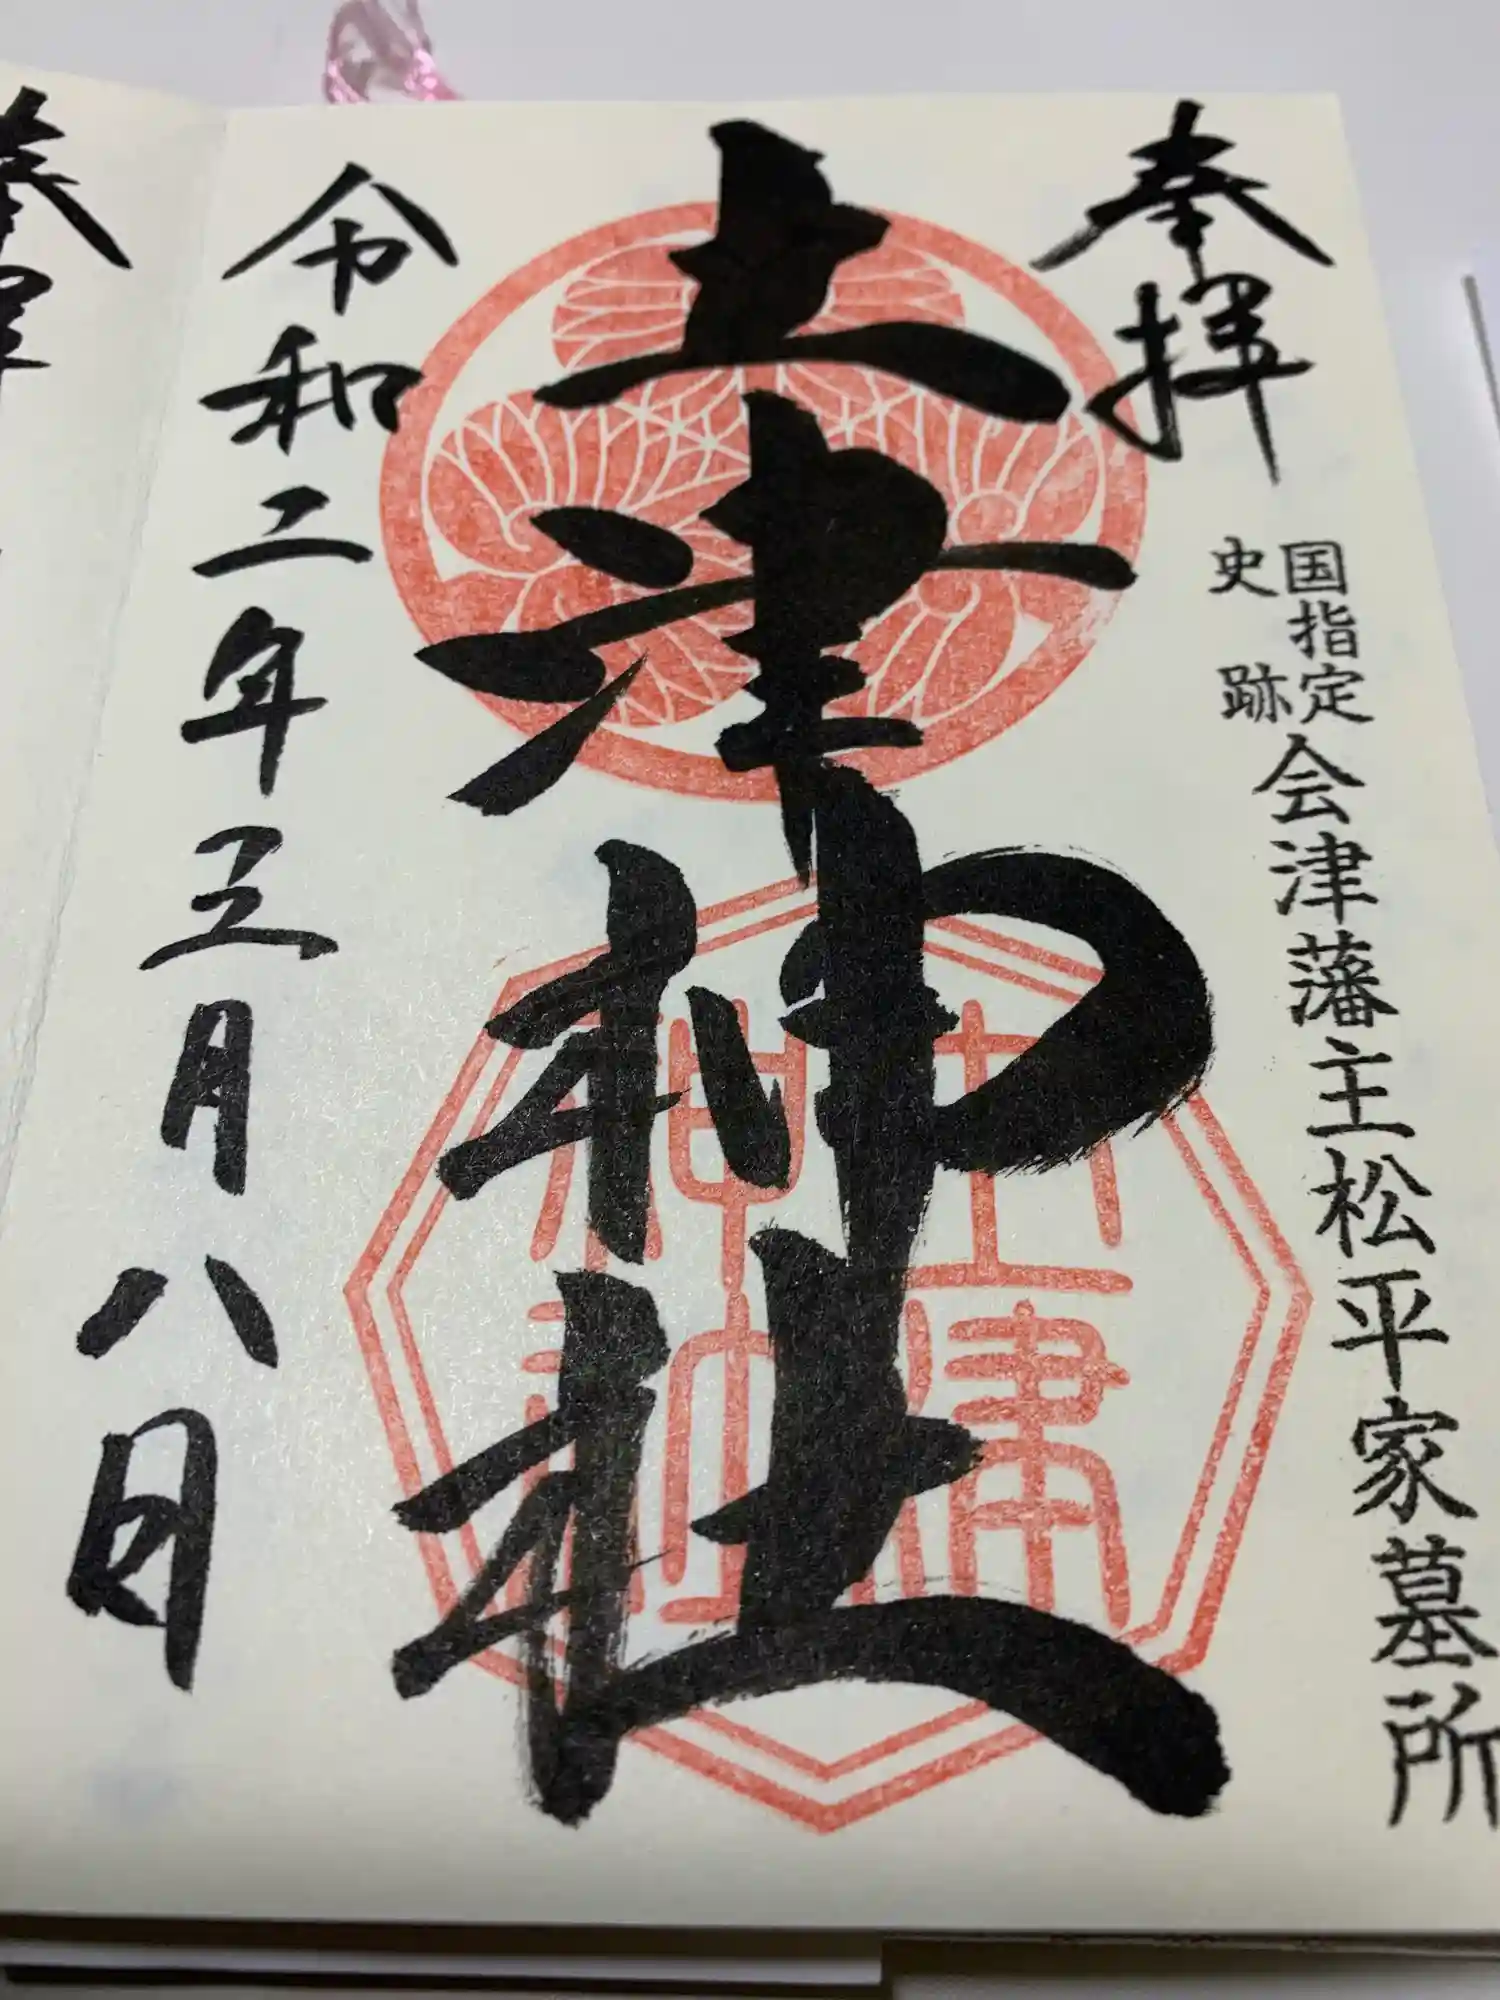 奉拝
国指定
史跡
会津藩主松平家墓所
土津神社
令和二年三月八日
奉拝